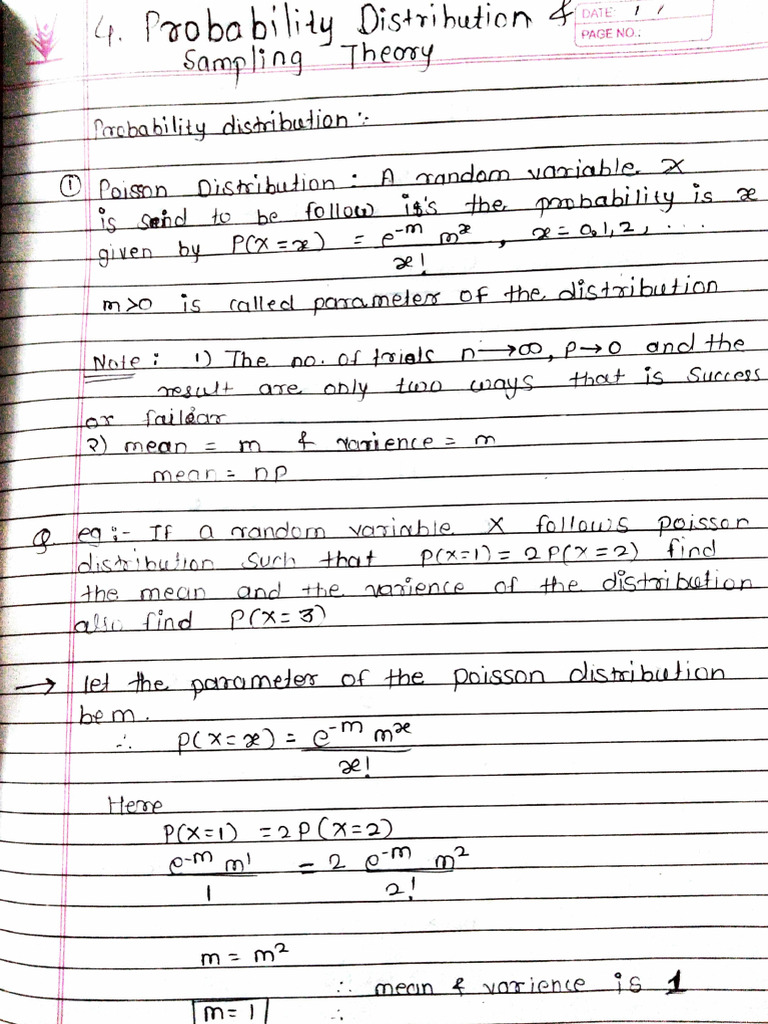 4. Probability Distribution &
Sampling Theory
DATE: / /
PAGE NO.:
Probability distribution :-
① Poisson Distribution : A random variable X
is said to be follow it's the probability is x
given by P(X=x) = e^-m m^x / x! , x = 0,1,2, ...
m>0 is called parameter of the distribution
Note : 1) The no. of trials n→∞, p→0 and the
result are only two ways that is success
or faildar
2) mean = m & varience = m
mean = np
Q eg :- If a random variable X follows poisson
distribution such that P(x=1) = 2P(x=2) find
the mean and the varience of the distribution
also find P(x=3)
→ let the parameter of the poisson distribution
be m.
∴ P(x=x) = e^-m m^x / x!
Here
P(x=1) = 2P(x=2)
e^-m m^1 / 1 = 2 e^-m m^2 / 2!
m = m^2
∴ mean & varience is 1
m = 1 ∴